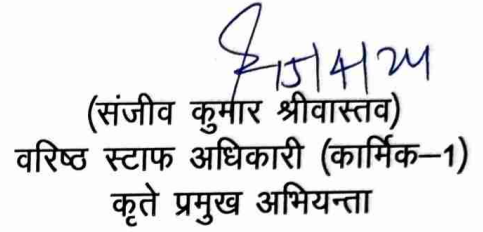 15/4/24
(संजीव कुमार श्रीवास्तव)
वरिष्ठ स्टाफ अधिकारी (कार्मिक–1)
कृते प्रमुख अभियन्ता